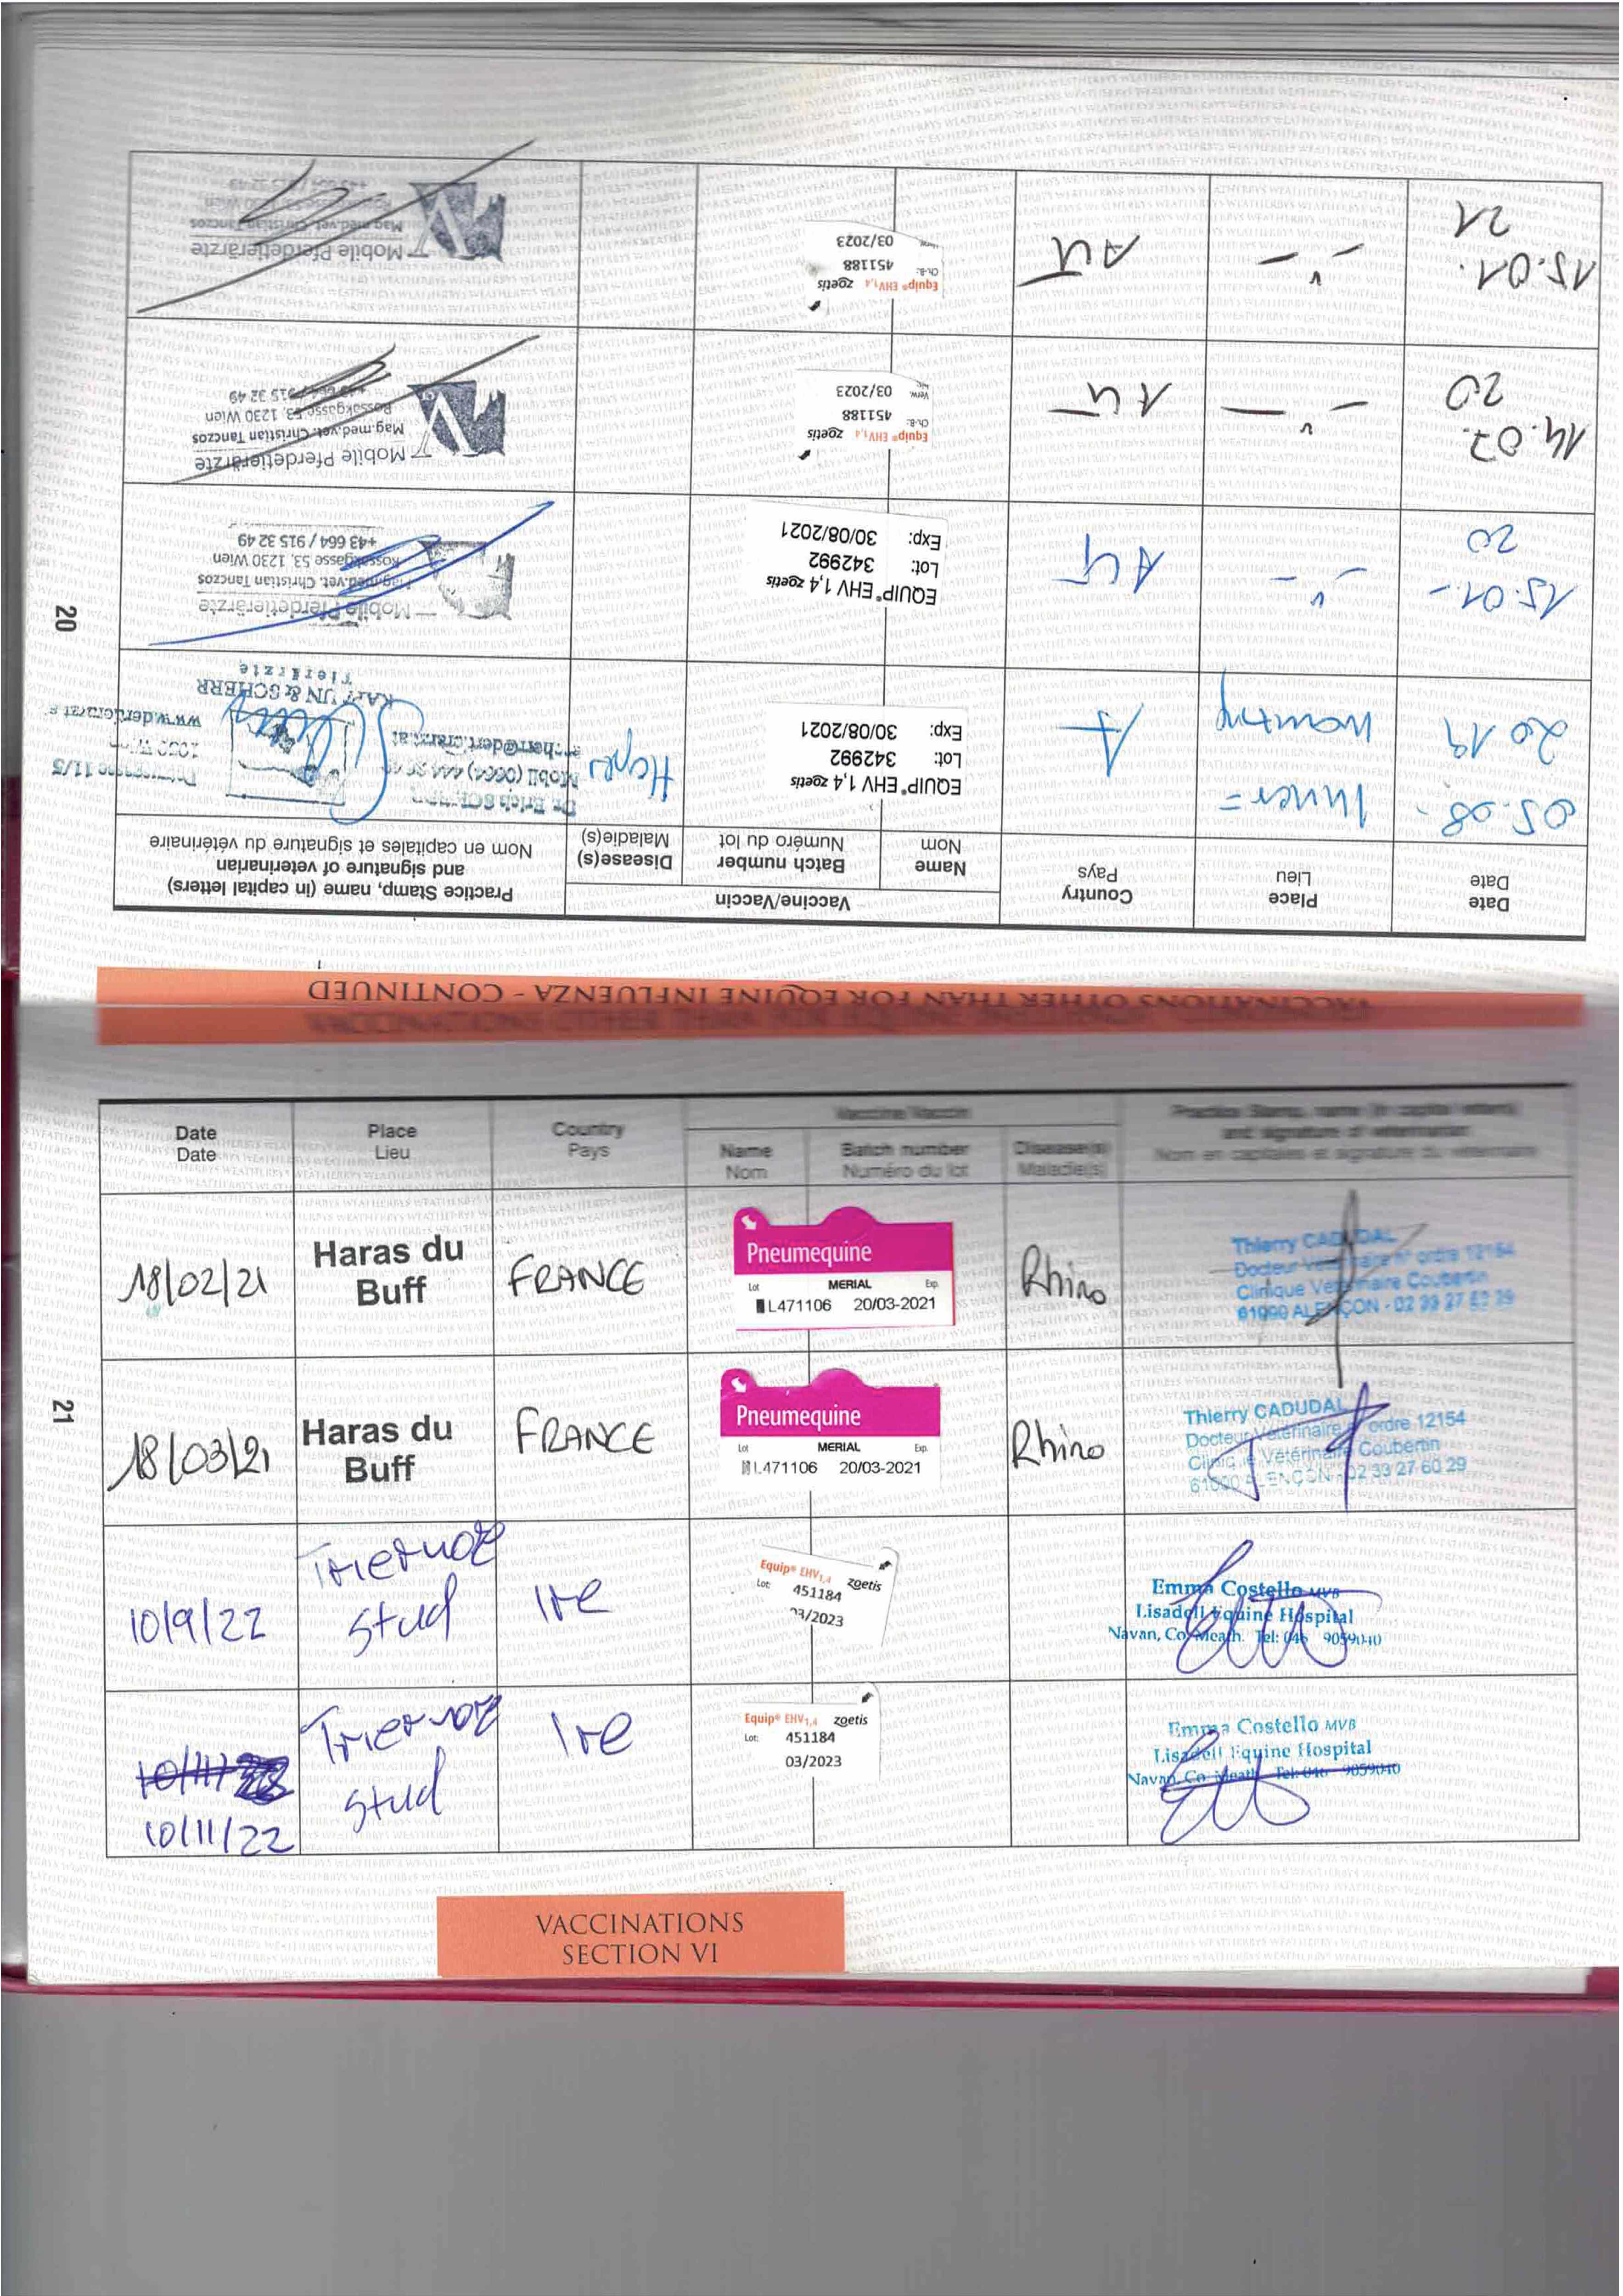 VACCINATIONS OTHER THAN FOR EQUINE INFLUENZA - CONTINUED
Date
Date
Place
Lieu
Country
Pays
Vaccine/Vaccin
Name
Nom
Batch number
Numéro du lot
Disease(s)
Maladie(s)
Practice Stamp, name (in capital letters)
and signature of veterinarian
Nom en capitales et signature du vétérinaire
05.08.
2019
A
EQUIP® EHV 1,4 zoetis
Lot: 342992
Exp: 30/08/2021
Herpes
Dr. Erich
Mobil (0664)
Tierärzte
15.01.-
20
- " -
AU
EQUIP® EHV 1,4 zoetis
Lot: 342992
Exp: 30/08/2021
Mobile Pferdetierärzte
Mag.med.vet. Christian Tanczos
Rossakgasse 53, 1230 Wien
+43 664 / 915 32 49
14.07.
20
- " -
AU
Equip® EHV1,4 zoetis
Ch.-B.: 451188
Verw. 03/2023
Mobile Pferdetierärzte
Mag.med.vet. Christian Tanczos
Rossakgasse 53, 1230 Wien
+43 664 / 915 32 49
15.01.
21
- " -
AU
Equip® EHV1,4 zoetis
Ch.-B.: 451188
Verw. 03/2023
Mobile Pferdetierärzte
Mag.med.vet. Christian Tanczos
20
Date
Date
Place
Lieu
Country
Pays
Vaccine/Vaccin
Name
Nom
Batch number
Numéro du lot
Disease(s)
Maladie(s)
Practice Stamp, name (in capital letters)
and signature of veterinarian
Nom en capitales et signature du vétérinaire
18/02/21
Haras du
Buff
FRANCE
Pneumequine
Lot MERIAL Exp.
L471106 20/03-2021
Rhino
Thierry CADUDAL
Docteur Vétérinaire n° ordre 12154
Clinique Vétérinaire Coubertin
61000 ALENÇON - 02 33 27 60 29
18/03/21
Haras du
Buff
FRANCE
Pneumequine
Lot MERIAL Exp.
L471106 20/03-2021
Rhino
Thierry CADUDAL
Docteur Vétérinaire n° ordre 12154
Clinique Vétérinaire Coubertin
61000 ALENÇON - 02 33 27 60 29
10/9/22
Triermore
Stud
Ire
Equip® EHV1,4 zoetis
Lot: 451184
03/2023
Emma Costello MVB
Lisadell Equine Hospital
Navan, Co. Meath. Tel: 046 9059040
10/11/22
Triermore
Stud
Ire
Equip® EHV1,4 zoetis
Lot: 451184
03/2023
Emma Costello MVB
Lisadell Equine Hospital
Navan, Co. Meath. Tel: 046 9059040
21
VACCINATIONS
SECTION VI